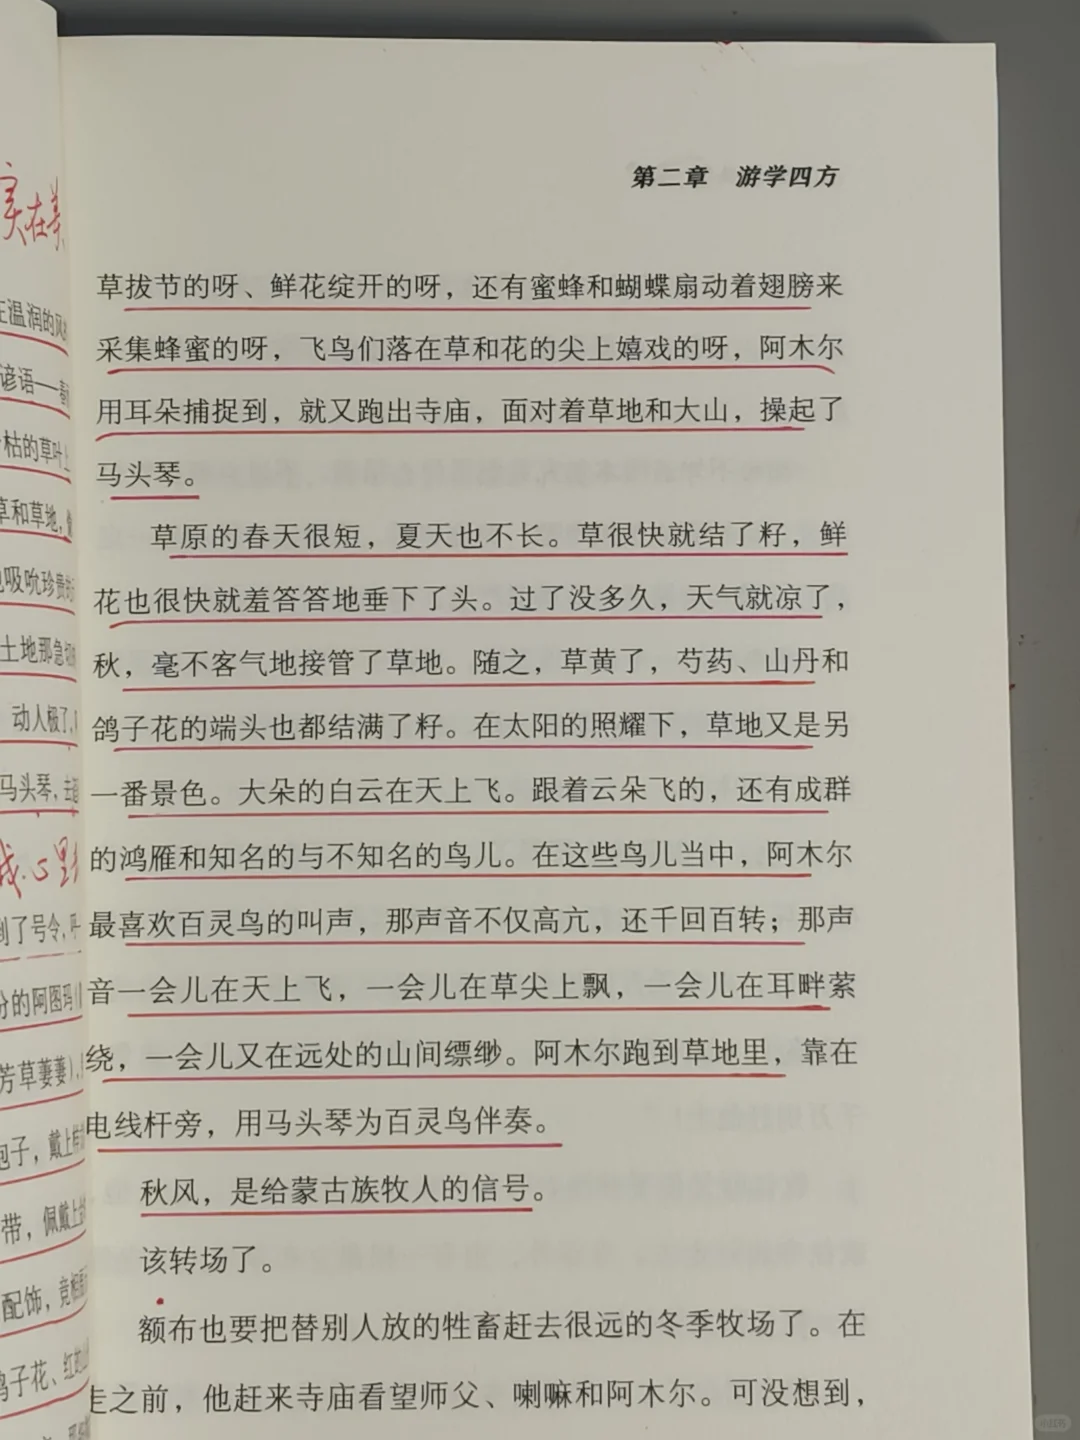 实在美
在温润的风
谚语——春
枯的草叶上
草和草地，像
吸吮珍贵的
土地那急切
动人极了，
马头琴，去
我心里
到了号令，呼
分的阿图玛
芳草萋萋），
袍子，戴上
带，佩戴上
配饰，竞相
鸽子花、红的
第二章　游学四方
草拔节的呀、鲜花绽开的呀，还有蜜蜂和蝴蝶扇动着翅膀来
采集蜂蜜的呀，飞鸟们落在草和花的尖上嬉戏的呀，阿木尔
用耳朵捕捉到，就又跑出寺庙，面对着草地和大山，操起了
马头琴。
草原的春天很短，夏天也不长。草很快就结了籽，鲜
花也很快就羞答答地垂下了头。过了没多久，天气就凉了，
秋，毫不客气地接管了草地。随之，草黄了，芍药、山丹和
鸽子花的端头也都结满了籽。在太阳的照耀下，草地又是另
一番景色。大朵的白云在天上飞。跟着云朵飞的，还有成群
的鸿雁和知名的与不知名的鸟儿。在这些鸟儿当中，阿木尔
最喜欢百灵鸟的叫声，那声音不仅高亢，还千回百转；那声
音一会儿在天上飞，一会儿在草尖上飘，一会儿在耳畔萦
绕，一会儿又在远处的山间缥缈。阿木尔跑到草地里，靠在
电线杆旁，用马头琴为百灵鸟伴奏。
秋风，是给蒙古族牧人的信号。
该转场了。
额布也要把替别人放的牲畜赶去很远的冬季牧场了。在
走之前，他赶来寺庙看望师父、喇嘛和阿木尔。可没想到，